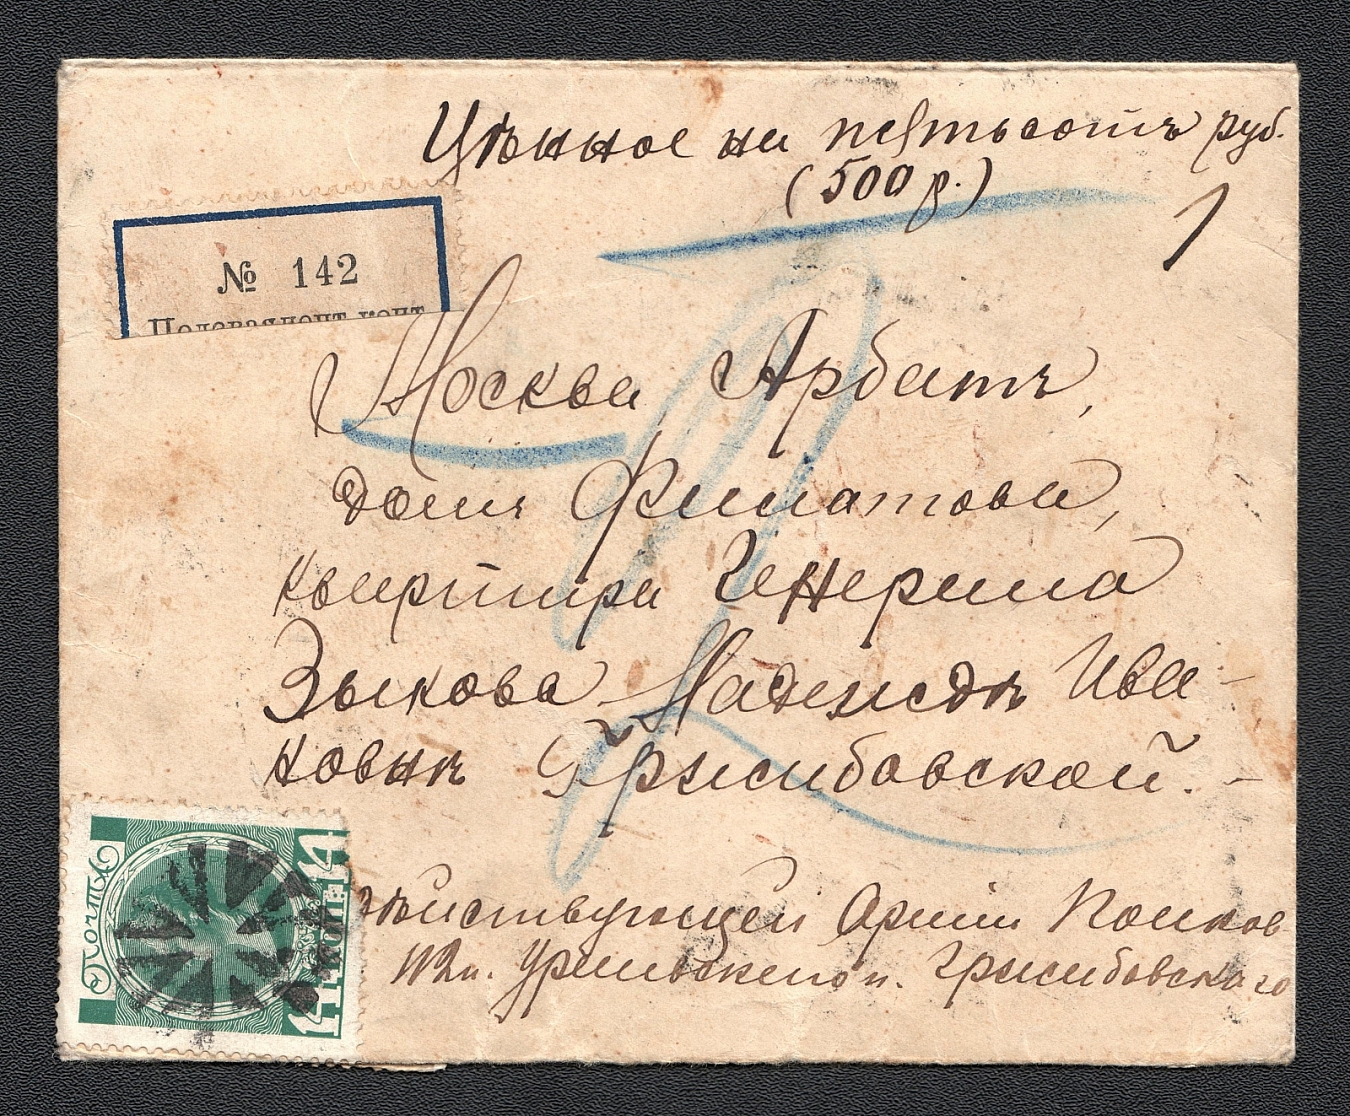 Цѣнное на пятьсотъ руб.
(500 р.)
№ 142
Полеваяпочт.конт.
Москва Арбатъ,
домъ Филатова,
квартира Генерала
Зыкова Надеждѣ Ива-
новнѣ Гржибовской.
Дѣйствующей Арміи Полков
Уральскаго п. Гржибовскаго
ПОЧТА
14 КОП. 14